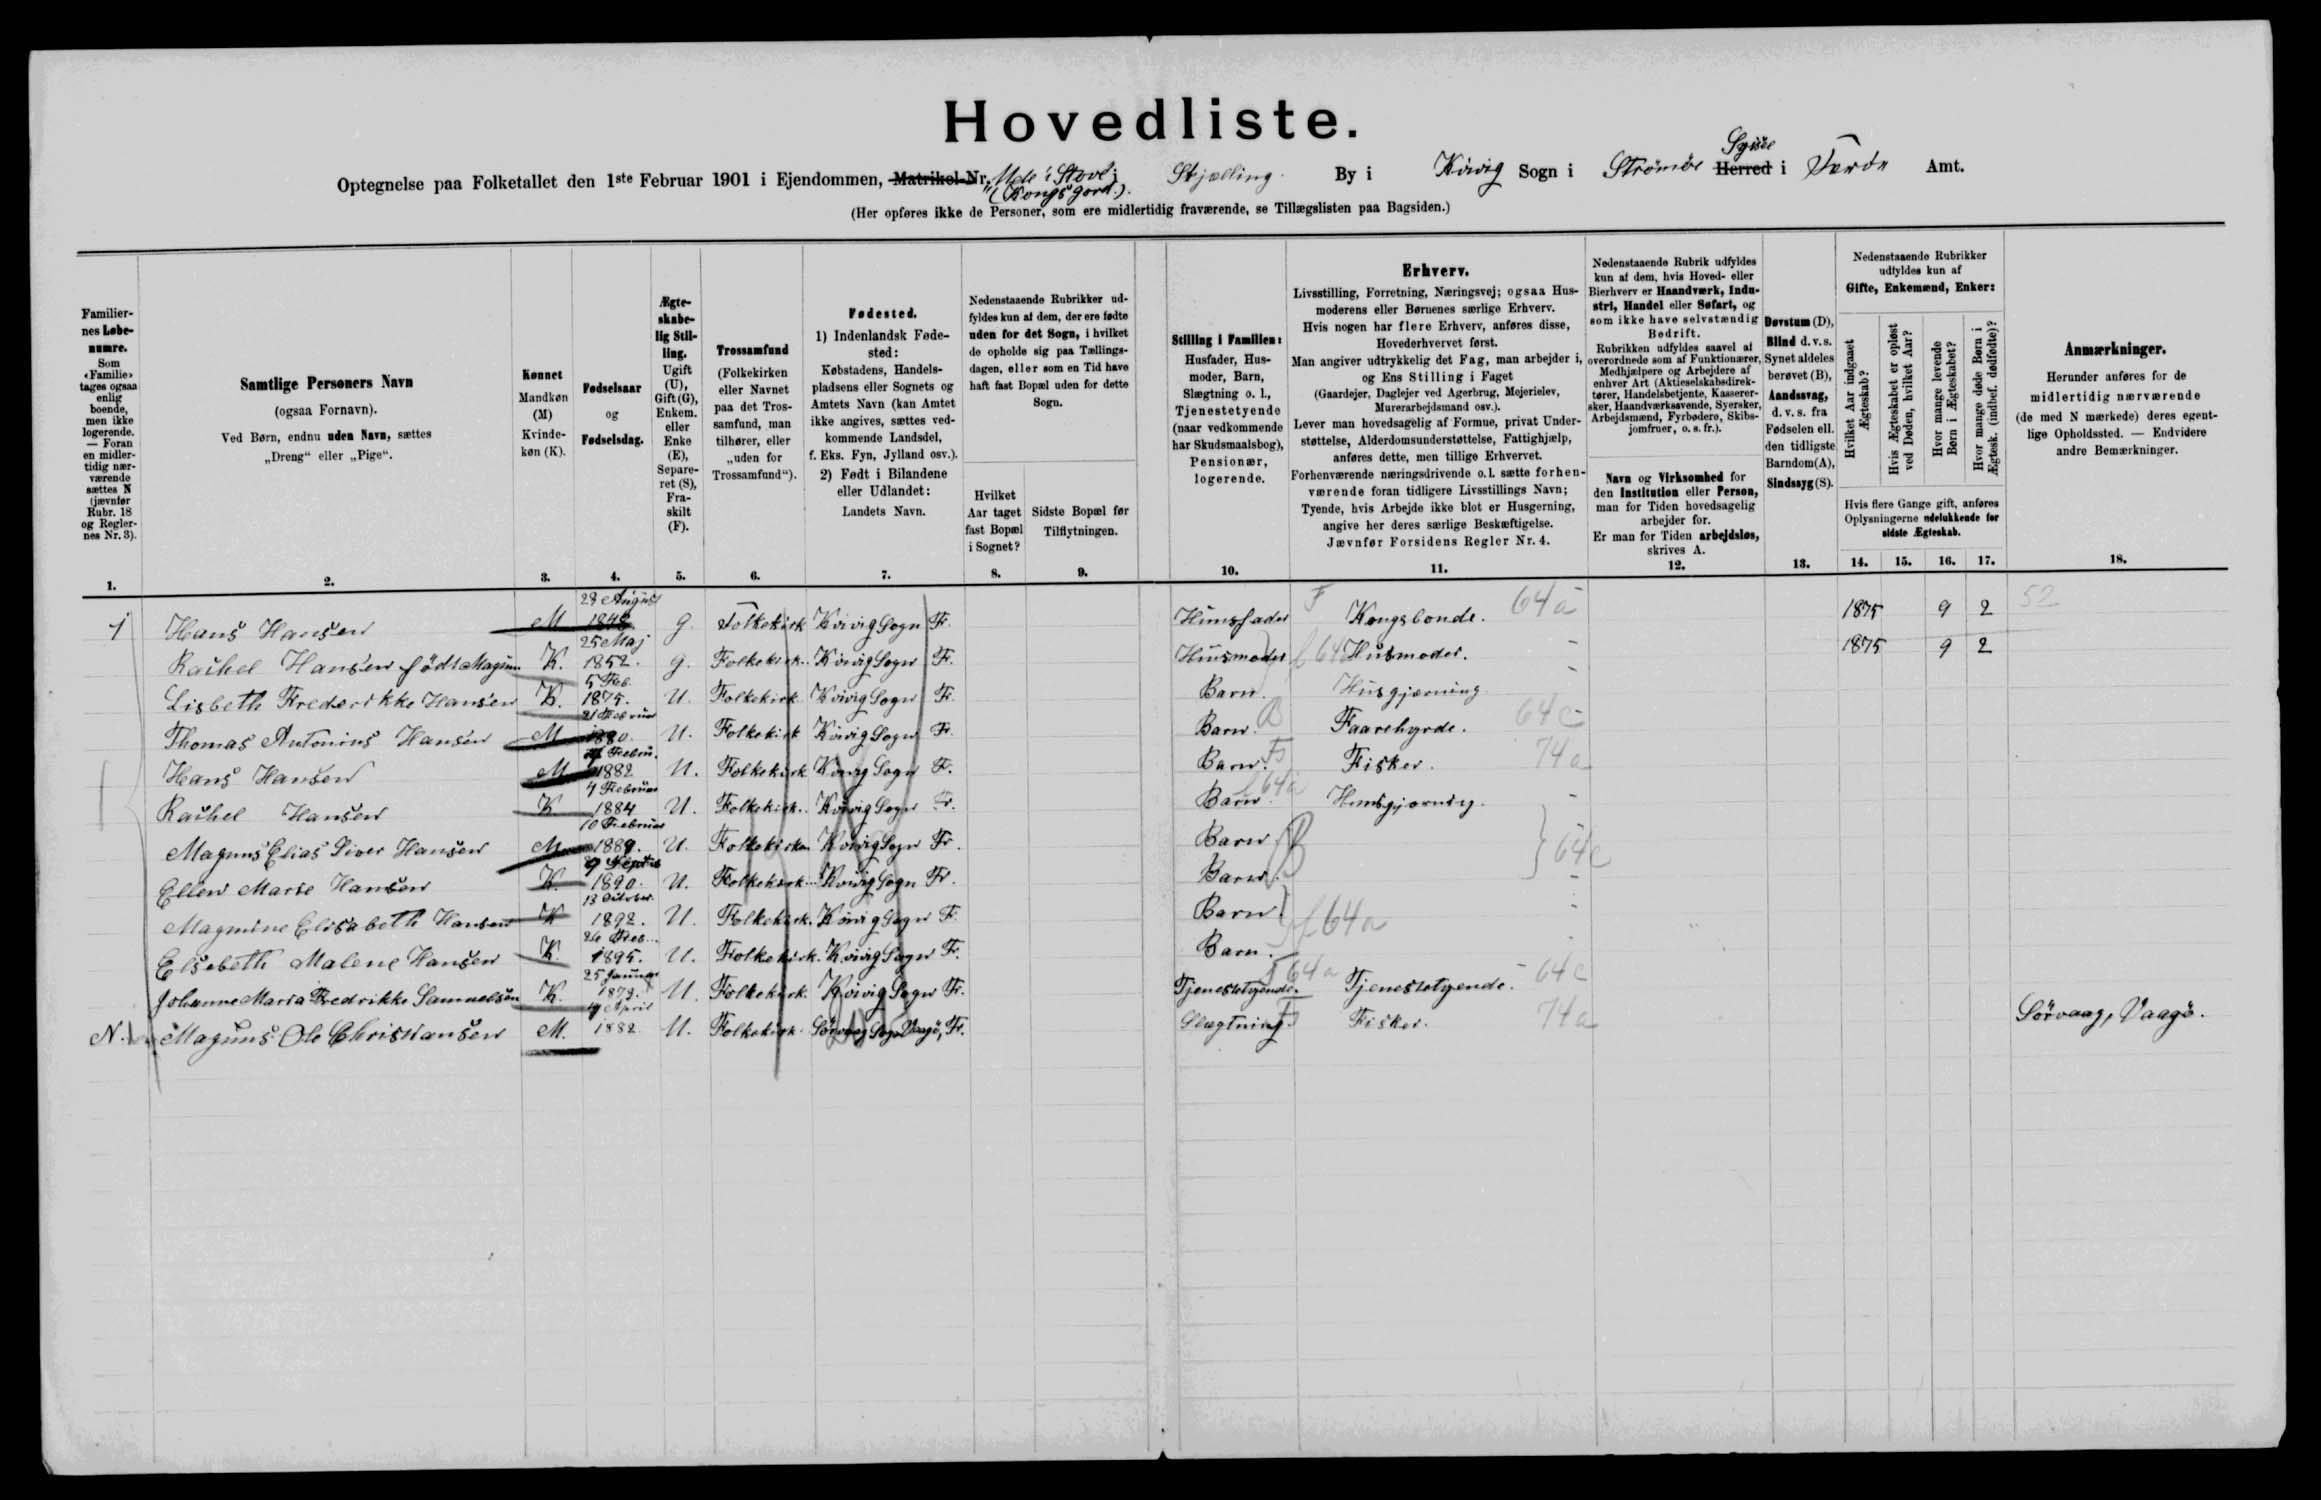 Hovedliste.
Optegnelse paa Folketallet den 1ste Februar 1901 i Ejendommen, Matrikel-Nr. Skjælling By i Kvivig Sogn i Strömöe Herred Sysse i Færö Amt.
(Kongsgord.)
(Her opføres ikke de Personer, som ere midlertidig fraværende, se Tillægslisten paa Bagsiden.)
Familiernes Løbenumre. Som «Familie» tages ogsaa enlig boende, men ikke logerende. — Foran en midlertidig nærværende sættes N (jævnfør Rubr. 18 og Reglernes Nr. 3).
Samtlige Personers Navn
(ogsaa Fornavn).
Ved Børn, endnu uden Navn, sættes
„Dreng“ eller „Pige“.
Kønnet
Mandkøn (M)
Kvindekøn (K).
Fødselsaar
og
Fødselsdag.
Ægteskabelig Stilling. Ugift (U), Gift (G), Enkem. eller Enke (E), Separeret (S), Fraskilt (F).
Trossamfund
(Folkekirken eller Navnet paa det Trossamfund, man tilhører, eller „uden for Trossamfund“).
Fødested.
1) Indenlandsk Fødested:
Købstadens, Handelspladsens eller Sognets og Amtets Navn (kan Amtet ikke angives, sættes vedkommende Landsdel, f. Eks. Fyn, Jylland osv.).
2) Født i Bilandene eller Udlandet:
Landets Navn.
Nedenstaaende Rubrikker udfyldes kun af dem, der ere fødte uden for det Sogn, i hvilket de opholde sig paa Tællingsdagen, eller som en Tid have haft fast Bopæl uden for dette Sogn.
Hvilket Aar taget fast Bopæl i Sognet?
Sidste Bopæl før Tilflytningen.
Stilling i Familien:
Husfader, Husmoder, Barn, Slægtning o. l., Tjenestetyende (naar vedkommende har Skudsmaalsbog), Pensionær, logerende.
Erhverv.
Livsstilling, Forretning, Næringsvej; ogsaa Husmoderens eller Børnenes særlige Erhverv.
Hvis nogen har flere Erhverv, anføres disse, Hovederhvervet først.
Man angiver udtrykkelig det Fag, man arbejder i, og Ens Stilling i Faget
(Gaardejer, Daglejer ved Agerbrug, Mejerielev, Murerarbejdsmand osv.).
Lever man hovedsagelig af Formue, privat Understøttelse, Alderdomsunderstøttelse, Fattighjælp, anføres dette, men tillige Erhvervet.
Forhenværende næringsdrivende o. l. sætte forhenværende foran tidligere Livsstillings Navn;
Tyende, hvis Arbejde ikke blot er Husgerning, angive her deres særlige Beskæftigelse.
Jævnfør Forsidens Regler Nr. 4.
Nedenstaaende Rubrik udfyldes kun af dem, hvis Hoved- eller Bierhverv er Haandværk, Industri, Handel eller Søfart, og som ikke have selvstændig Bedrift.
Rubrikken udfyldes saavel af overordnede som af Funktionærer, Medhjælpere og Arbejdere af enhver Art (Aktieselskabsdirektører, Handelsbetjente, Kasserersker, Haandværkssvende, Syersker, Arbejdsmænd, Fyrbødere, Skibsjomfruer, o. s. fr.).
Navn og Virksomhed for den Institution eller Person, man for Tiden hovedsagelig arbejder for.
Er man for Tiden arbejdsløs, skrives A.
Døvstum (D), Blind d. v. s. Synet aldeles berøvet (B), Aandssvag, d. v. s. fra Fødselen ell. den tidligste Barndom (A), Sindssyg (S).
Nedenstaaende Rubrikker udfyldes kun af
Gifte, Enkemænd, Enker:
Hvilket Aar indgaaet Ægteskab?
Hvis Ægteskabet er opløst ved Døden, hvilket Aar?
Hvor mange levende Børn i Ægteskabet?
Hvor mange døde Børn i Ægtesk. (indbef. dødfødte)?
Hvis flere Gange gift, anføres Oplysningerne udelukkende for sidste Ægteskab.
Anmærkninger.
Herunder anføres for de midlertidig nærværende (de med N mærkede) deres egentlige Opholdssted. — Endvidere andre Bemærkninger.
1. 2. 3. 4. 5. 6. 7. 8. 9. 10. 11. 12. 13. 14. 15. 16. 17. 18.
1 Hans Hansen M 28 August G. Folkekirk Kvivig Sogn Fr. Huusfader F Kongsbonde. 64a 1875 9 2 52
Rachel Hansen födt Magnu K. 25 Maj 1852. G. Folkekirk. Kvivig Sogn Fr. Husmoder Husmoder. 1875 9 2
Lisbeth Frederikke Hansen K. 5 Feb. 1875. U. Folkekirk Kvivig Sogn Fr. Barn. Husgjærning
Thomas Antonius Hansen M 21 Februar 1880. U. Folkekirk Kvivig Sogn Fr. Barn. B Faarehyrde. 64c
Hans Hansen M Febru. 1882 U. Folkekirk Kvivig Sogn Fr. Barn. Fisker. 74a
Rachel Hansen K 4 Februar 1884 U. Folkekirk. Kvivig Sogn Fr. Barn. 64a Huusgjærning.
Magnus Elias Siver Hansen M 10 Februar 1889. U. Folkekirken Kvivig Sogn Fr. Barn B 64c
Ellen Marie Hansen K. 1890. U. Folkekirk Kvivig Sogn Fr. Barn.
Magnine Elisabeth Hansen K 13 October 1892. U. Folkekirk. Kvivig Sogn Fr. Barn. 64a
Elsebeth Malene Hansen K. 26 Feb. 1895. U. Folkekirk. Kvivig Sogn Fr. Barn.
Johanne Maria Fredrikke Samuelsen K. 25 Januar U. Folkekirk. Kvivig Sogn Fr. Tjenestetyende. 64a Tjenestetyende. 64c
N. Magnus Ole Christiansen M. April 1882 U. Folkekirk. Sörvaag Sogn Vaagö, Fr. Slægtning Fisker. 74a Sörvaag, Vaagö.